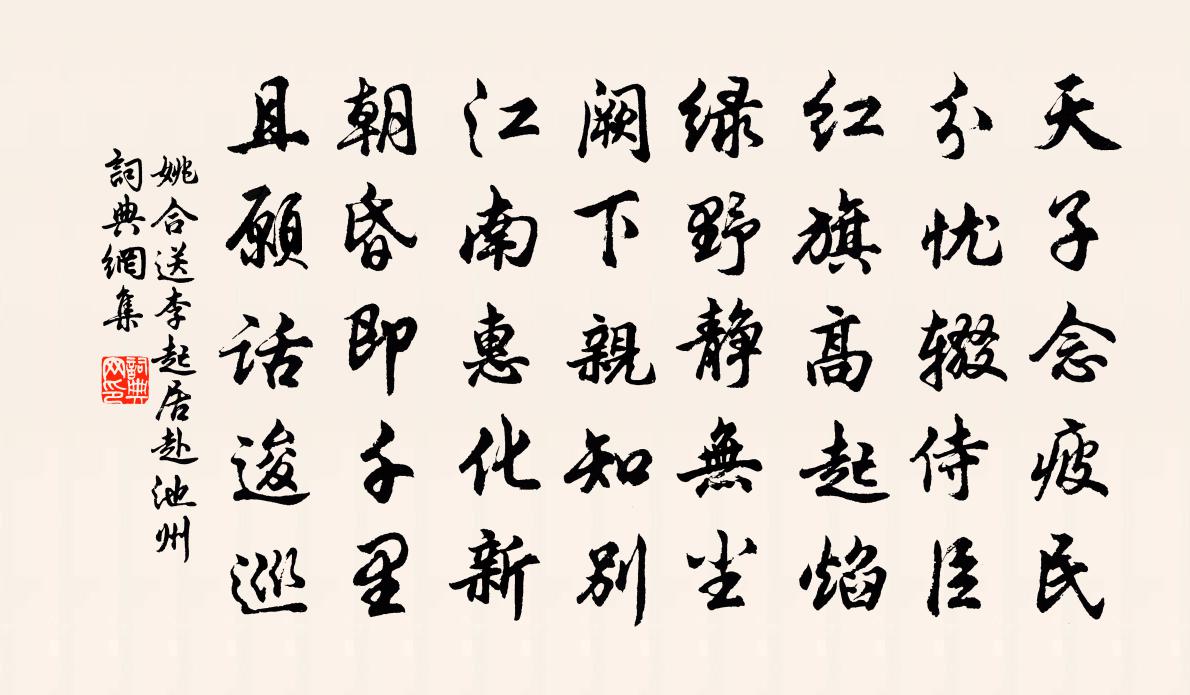 天子念疲民
分忧辍侍臣
红旗高起焰
绿野静無尘
阙下親知别
江南惠化新
朝昏即千里
且願话逡巡
姚合送李起居赴池州
詞典網集
詞典网印